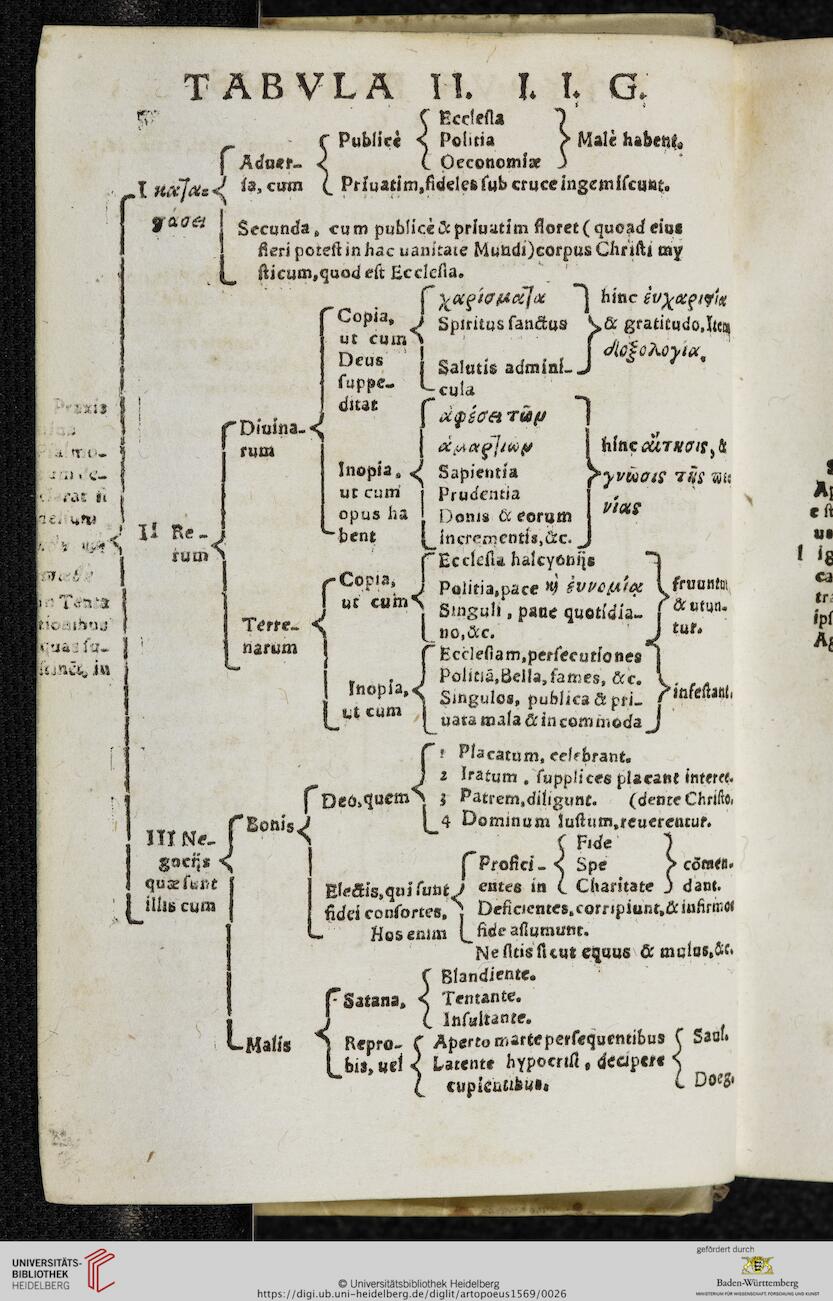 TABVLA II. I. I. G.
Ecclesia
Publicè Politia Malè habent.
Aduer- Oeconomiæ
I κατα= sa, cum Priuatim, fideles sub cruce ingemiscunt.
ϛάσει
Secunda, cum publicè & priuatim floret (quoad eius
fieri potest in hac uanitate Mundi) corpus Christi my
sticum, quod est Ecclesia.
χαρίσματα hinc ἐυχαριϛία
Copia, Spiritus sanctus & gratitudo, Item
ut cum δοξολογία.
Deus Salutis admini-
suppe- cula
ditat
ἀφέσει τῶν
Diuina- ἁμαρτιῶν hinc αἴτησις, &
rum
Inopia, Sapientia γνῶσις τῆς
ut cum Prudentia νίας
opus ha Donis & eorum
bent incrementis, &c.
Praxis
II Re-
rum
in Tenta
tionibus
Ecclesia halcyonijs
Copia, Politia, pace ἐυνομίᾳ fruuntur
ut cum Singuli, pane quotidia- & utun-
no, &c. tur.
Terre-
narum
Ecclesiam, persecutiones
Politiã, Bella, fames, &c.
Inopia, Singulos, publica & pri- infestant.
ut cum uata mala & incommoda
1 Placatum, celebrant.
2 Iratum, supplices placant interce-
Deo, quem 3 Patrem, diligunt. (dente Christo.
4 Dominum Iustum, reuerentur.
Bonis
III Ne-
gocijs
quæ sunt
illis cum
Fide
Profici- Spe cõmen-
entes in Charitate dant.
Electis, qui sunt
fidei consortes, Deficientes, corripiunt, & infirmos
Hos enim fide assumunt.
Ne sitis sicut equus & mulus, &c.
Blandiente.
Satana, Tentante.
Insultante.
Malis
Repro- Aperto marte persequentibus Saul.
bis, uel Latente hypocrisi, decipere
cupientibus. Doeg.
UNIVERSITÄTS-
BIBLIOTHEK
HEIDELBERG
© Universitätsbibliothek Heidelberg
https://digi.ub.uni-heidelberg.de/diglit/artopoeus1569/0026
gefördert durch
Baden-Württemberg
MINISTERIUM FÜR WISSENSCHAFT, FORSCHUNG UND KUNST